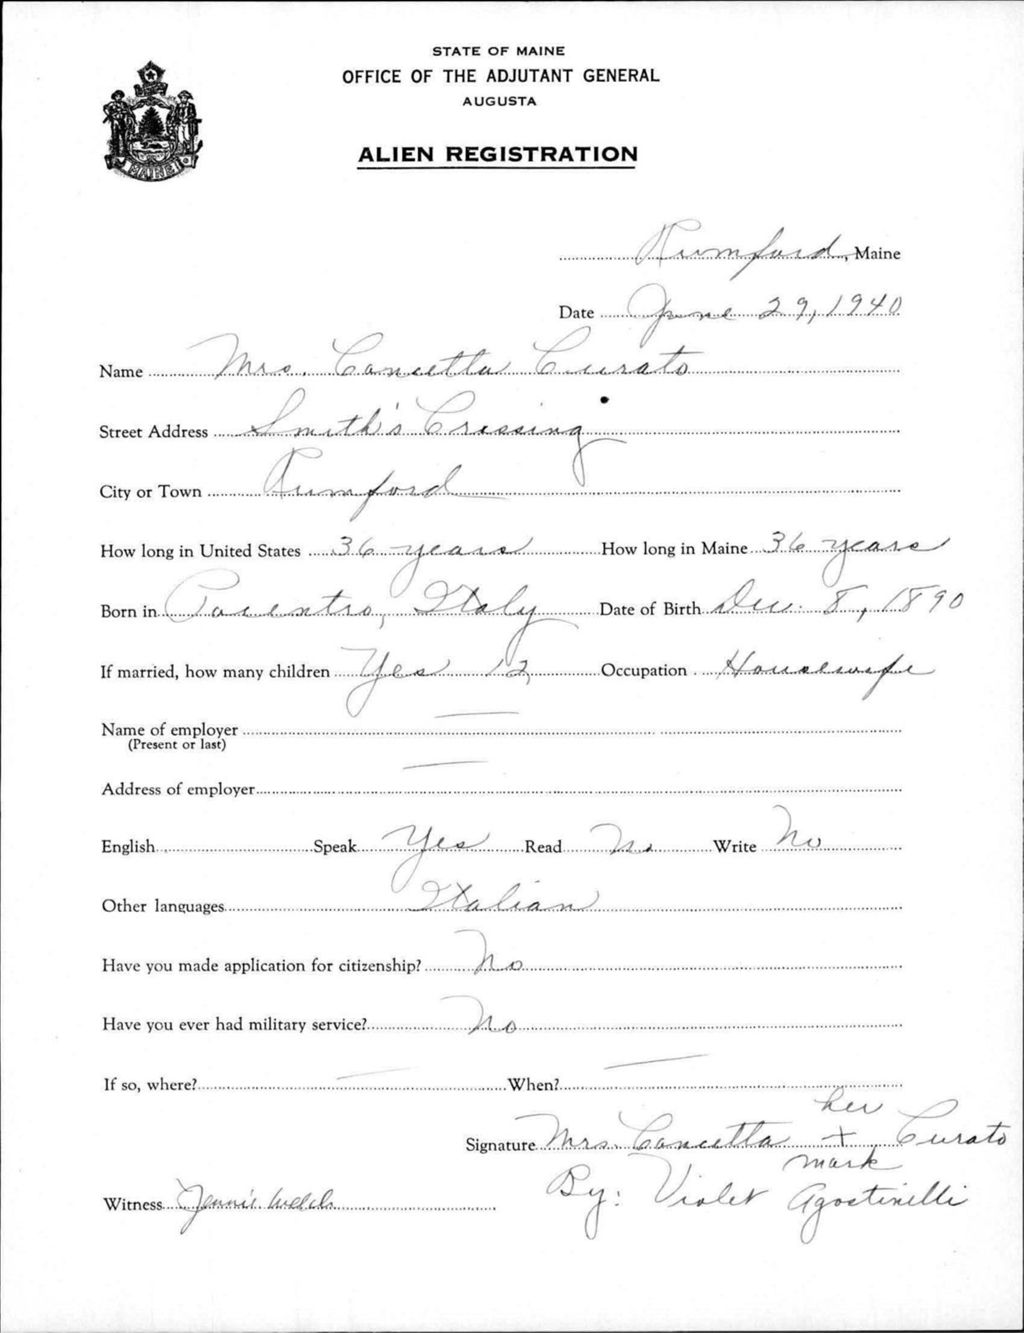 STATE OF MAINE
OFFICE OF THE ADJUTANT GENERAL
AUGUSTA
ALIEN REGISTRATION
MAINE
Rumford, Maine
Date June 29, 1940
Name Mrs. Concetta Curato
Street Address Smith's Crossing
City or Town Rumford
How long in United States 36 years How long in Maine 36 years
Born in Pacentro, Italy Date of Birth Dec. 8, 1890
If married, how many children Yes 12 Occupation Housewife
Name of employer —
(Present or last)
Address of employer —
English Speak Yes Read No Write No
Other languages Italian
Have you made application for citizenship? No
Have you ever had military service? No
If so, where? — When? —
her
Signature Mrs. Concetta + Curato
mark
Witness Jennie Welch By: Violet Agostinelli